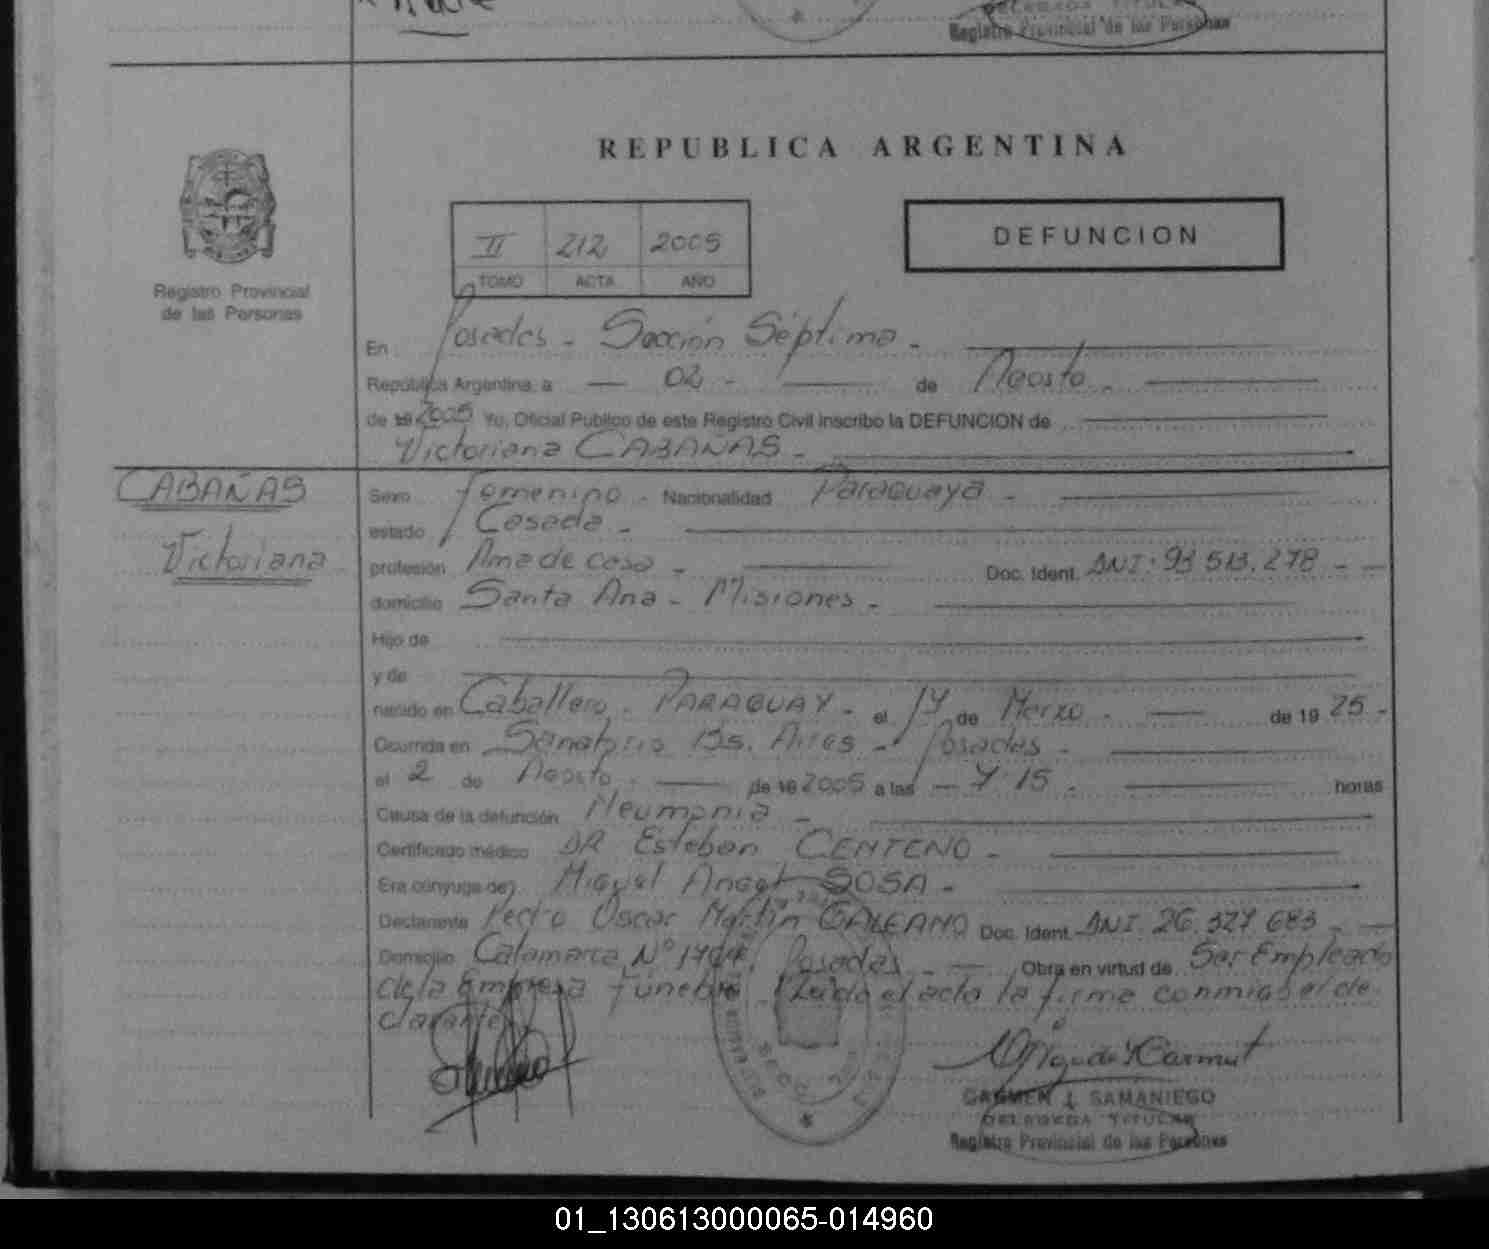 Registro Provincial de las Personas
REPUBLICA ARGENTINA
Registro Provincial
de las Personas
II 212 2005
TOMO ACTA AÑO
DEFUNCION
En Posadas - Sección Séptima -
República Argentina, a — 02 - — de Agosto -
de 19 2005 Yo, Oficial Público de este Registro Civil inscribo la DEFUNCION de
Victoriana CABAÑAS -
CABAÑAS
Victoriana
Sexo femenino - Nacionalidad Paraguaya -
estado Casada -
profesión Ama de casa - Doc. Ident. DNI: 93.513.278 -
domicilio Santa Ana - Misiones -
Hijo de
y de
nacido en Caballero - PARAGUAY - el 14 de Marzo - de 19 25 -
Ocurrida en Sanatorio Bs. Aires - Posadas -
el 2 de Agosto - de 19 2005 a las — 7:15 - horas
Causa de la defunción Neumonia -
Certificado médico DR Esteban CENTENO -
Era cónyuge de Miguel Angel SOSA -
Declarante Pedro Oscar Martin GALEANO Doc. Ident. DNI. 26.327.683 -
Domicilio Catamarca Nº Posadas - Obra en virtud de Ser Empleado
de la Empresa fúnebre - Leida el acta la firma conmigo el de
clarante
CARMEN J. SAMANIEGO
DELEGADA TITULAR
Registro Provincial de las Personas
01_130613000065-014960